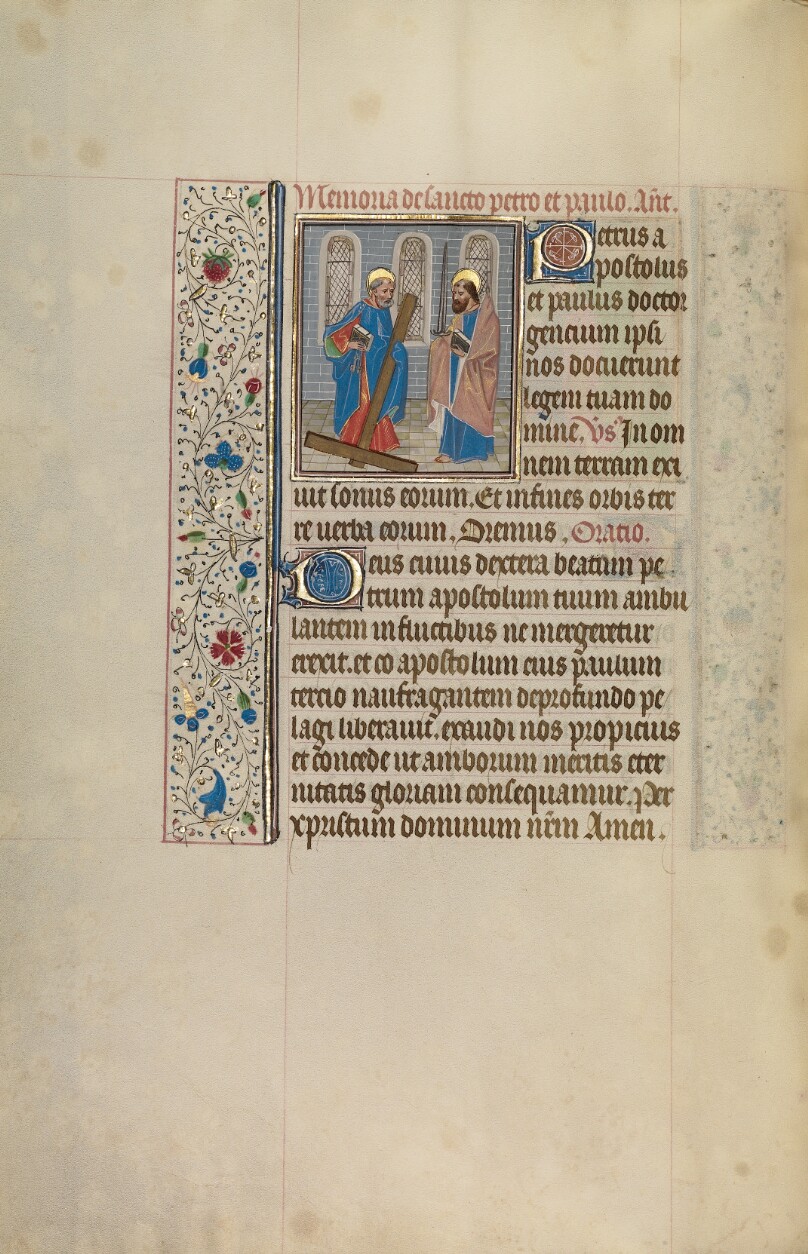 Memoria de sancto petro et paulo. Añt.
Petrus a
postolus
et paulus doctor
gencium ipsi
nos docuerunt
legem tuam do
mine. Vs̄ In om
nem terram exi
uit sonus eorum. Et in fines orbis ter
re uerba eorum. Oremus. Oratio.
Deus cuius dextera beatum pe
trum apostolum tuum ambu
lantem in fluctibus ne mergeretur
erexit. et co apostolum eius paulum
tercio naufragantem de profundo pe
lagi liberauit. exaudi nos propicius
et concede ut amborum meritis eter
nitatis gloriam consequamur. Per
xpristum dominum nr̄m Amen.